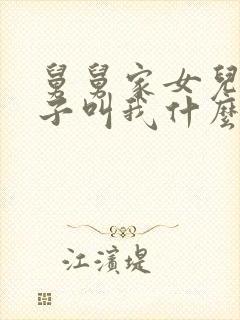 舅舅家女兒
子叫我什麼
江濱堤